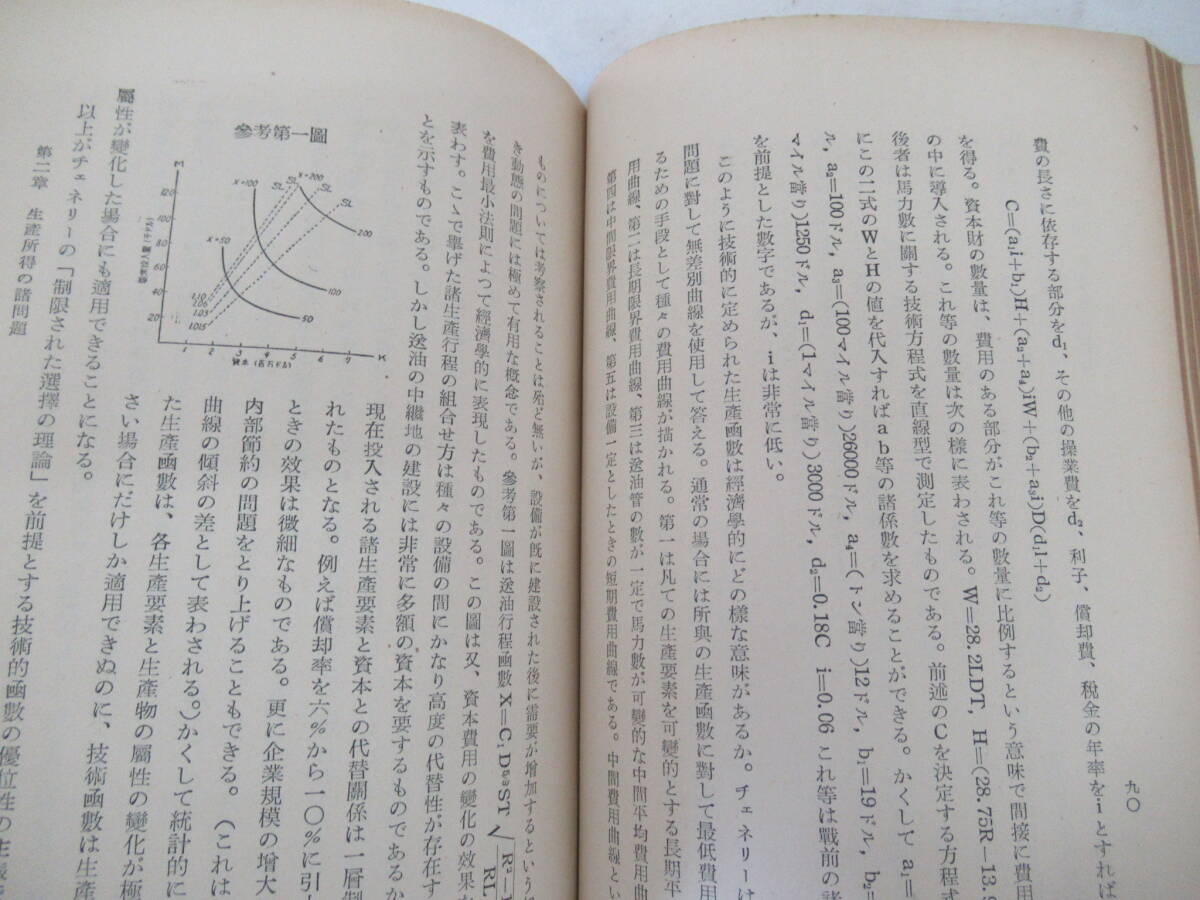 九〇
費の長さに依存する部分をd₁、その他の操業費をd₂、利子、償却費、税金の年率をiとすれば
C=(a₁i+b₁)H+(a₂+a₄)iW+(b₂+a₃i)D(d₁l+d₂)
を得る。資本財の數量は、費用のある部分がこれ等の數量に比例するという意味で間接に費用
の中に導入される。これ等の數量は次の樣に表わされる。W=28.2LDT, H=(28.75R—13.9
後者は馬力數に關する技術方程式を直線型で測定したものである。前述のCを決定する方程式
にこの二式のWとHの値を代入すればab等の諸係數を求めることができる。かくしてa₁=
ル, a₂=100ドル, a₃=(100マイル當り)26000ドル, a₄=(トン當り)12ドル, b₁=19ドル, b₂=
マイル當り)1250ドル, d₁=(1マイル當り)3000ドル, d₂=0.18C i=0.06 これ等は戰前の諸
を前提とした數字であるが、iは非常に低い。
このように技術的に定められた生產函數は經濟學的にどの樣な意味があるか。チェネリーは
問題に對して無差別曲線を使用して答える。通常の場合には所與の生產函數に對して最低費用
るための手段として種々の費用曲線が描かれる。第一は凡ての生產要素を可變的とする長期平
用曲線、第二は長期限界費用曲線、第三は送油管の數が一定で馬力數が可變的な中間平均費用曲
第四は中間限界費用曲線、第五は設備一定としたときの短期費用曲線である。中間費用曲線とい
ものについては考察されることは殆ど無いが、設備が既に建設された後に需要が増加するという
き動態の問題には極めて有用な概念である。參考第一圖は送油行程函數 X=C₁D ST √
を費用最小法則によつて經濟學的に表現したものである。この圖は又、資本費用の變化の效果
表わす。こゝで擧げた諸生產行程の組合せ方は種々の設備の間にかなり高度の代替性が存在す
とを示すものである。しかし送油の中繼地の建設には非常に多額の資本を要するものであるか
現在投入される諸生產要素と資本との代替關係は一層制
れたものとなる。例えば償却率を六%から一〇%に引
ときの效果は微細なものである。更に企業規模の增大
内部節約の問題をとり上げることもできる。(これは
曲線の傾斜の差として表わされる。)かくして統計的に
た生產函數は、各生產要素と生產物の屬性の變化が極
さい場合にだけしか適用できぬのに、技術函數は生產
參考第一圖
M
120
100
80
60
40
20
X=200
X=100
X=50
SL
SL
SL
SL
200
100
50
1.10
1.06
1.03
1.015
1 2 3 4 5 6 7
K
資本(百万ドル)
屬性が變化した場合にも適用できることになる。
以上がチェネリーの「制限された選擇の理論」を前提とする技術的函數の優位性の主張で
第二章 生產所得の諸問題